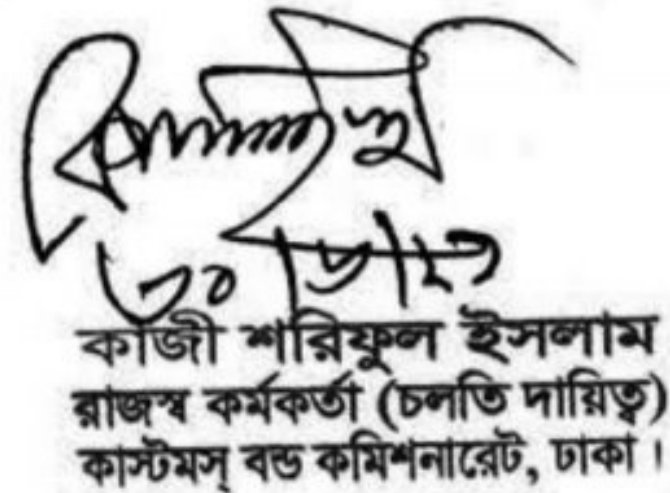 ৩০|৮|১২
কাজী শরিফুল ইসলাম
রাজস্ব কর্মকর্তা (চলতি দায়িত্ব)
কাস্টমস্ বন্ড কমিশনারেট, ঢাকা।